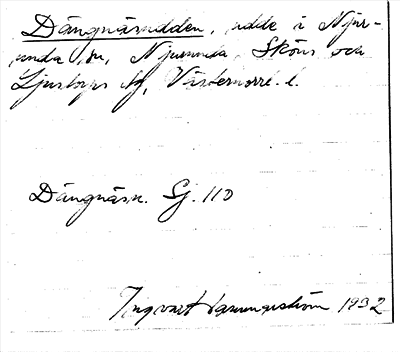 Dängnäsudden, udde i Njur-
unda sn, Njurunda, Sköns och
Ljustorps tg, Västernorrl. l.
Dängnäsn. Sj. 110
Ingvart 1932